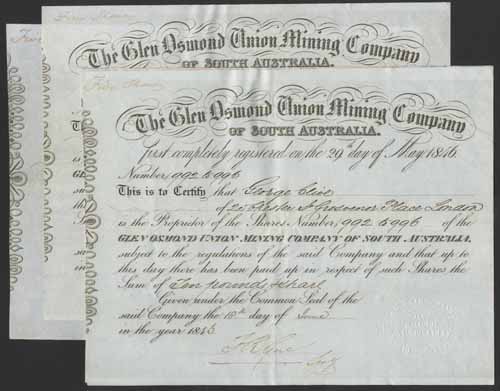 Five Shares
The Glen Osmond Union Mining Company
OF SOUTH AUSTRALIA.
Five Shares
The Glen Osmond Union Mining Company
OF SOUTH AUSTRALIA.
first completely registered on the 29th day of May 1846
Number 992 to 996
This is to Certify that George Clive
of 25 Chester St Grosvenor Place London
is the Proprietor of the Shares Number, 992 to 996 of the
GLEN OSMOND UNION MINING COMPANY OF SOUTH AUSTRALIA,
subject to the regulations of the said Company and that up to
this day there has been paid up in respect of such Shares the
Sum of pound
Given under the Common Seal of the
said Company the 18th day of June
in the year 1846